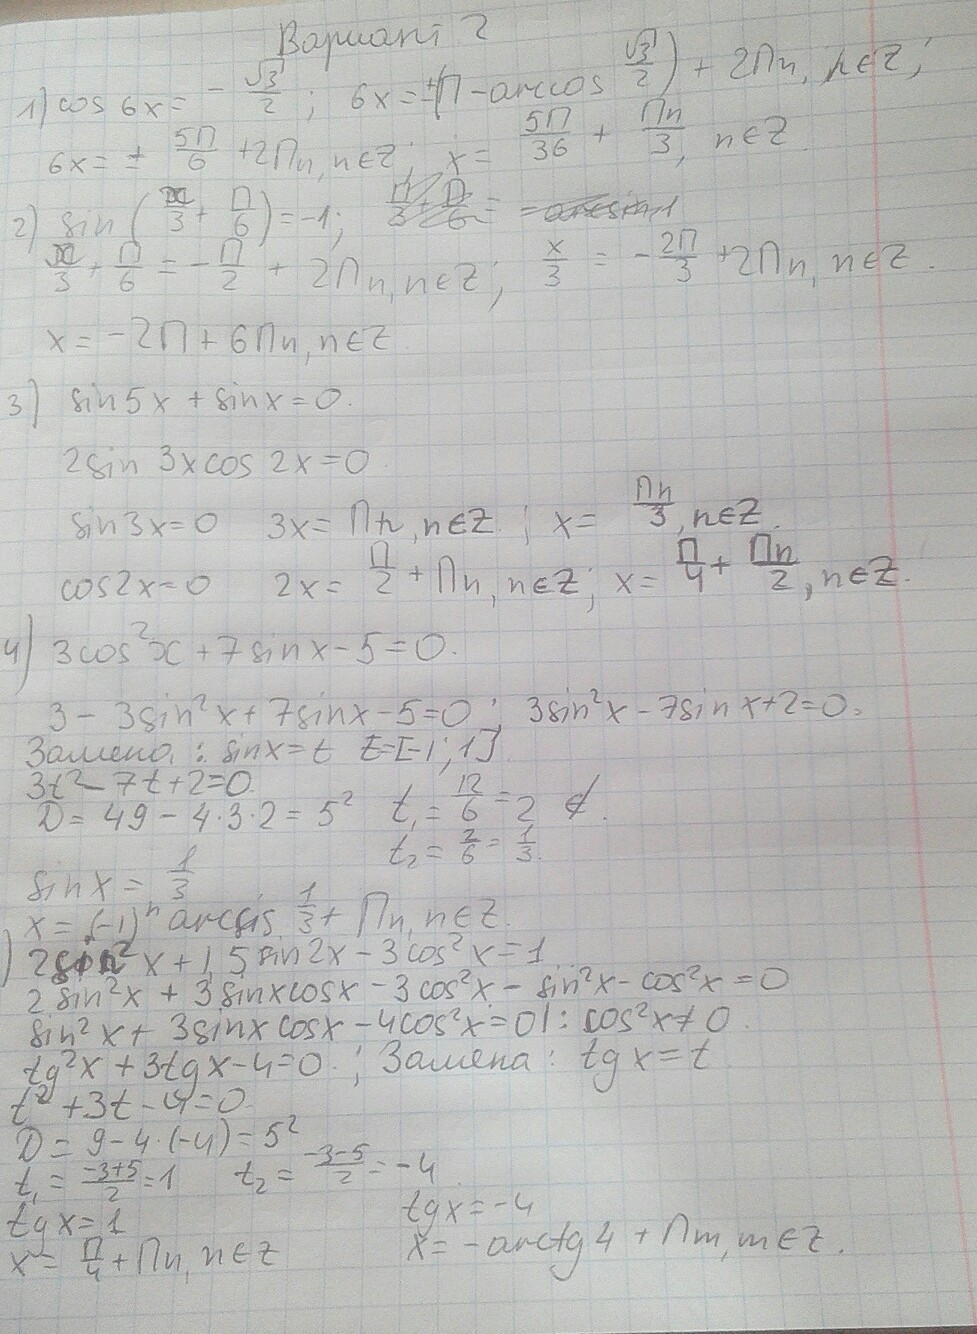 Вариант 2
1) cos 6x = - √3/2 ; 6x = ±(П - arccos √3/2) + 2Пn, n∈Z;
6x = ± 5П/6 + 2Пn, n∈Z; x = 5П/36 + Пn/3, n∈Z
2) sin (x/3 + П/6) = -1;
x/3 + П/6 = - П/2 + 2Пn, n∈Z; x/3 = - 2П/3 + 2Пn, n∈Z.
x = -2П + 6Пn, n∈Z
3) sin 5x + sin x = 0.
2 sin 3x cos 2x = 0
sin 3x = 0 3x = Пn, n∈Z. ; x = Пn/3, n∈Z.
cos 2x = 0 2x = П/2 + Пn, n∈Z; x = П/4 + Пn/2, n∈Z.
4) 3cos²x + 7sin x - 5 = 0.
3 - 3sin²x + 7sin x - 5 = 0 ; 3sin²x - 7sin x + 2 = 0.
Замена: sin x = t t = [-1; 1]
3t² - 7t + 2 = 0.
D = 49 - 4·3·2 = 5² t₁ = 12/6 = 2 ∉.
t₂ = 2/6 = 1/3.
sin x = 1/3
x = (-1)ⁿ arcsis 1/3 + Пn, n∈Z.
) 2sin²x + 1,5 sin 2x - 3cos²x = 1
2sin²x + 3sin x cos x - 3cos²x - sin²x - cos²x = 0
sin²x + 3sin x cos x - 4cos²x = 0 | : cos²x ≠ 0.
tg²x + 3tg x - 4 = 0. ; Замена: tg x = t
t² + 3t - 4 = 0
D = 9 - 4·(-4) = 5²
t₁ = -3+5/2 = 1 t₂ = -3-5/2 = -4
tg x = 1 tg x = -4
x = П/4 + Пn, n∈Z x = -arctg 4 + Пm, m∈Z.